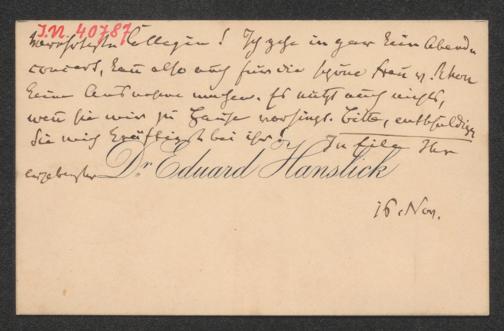 I.N. 40787
Verehrteste Collegin! Ich gehe in gar kein Abend-
concert, kann also auch für die schöne Frau v.
keine Ausnahme machen. Es nützt auch nichts,
wenn sie mir zu Hause vorsingt. Bitte, entschuldigen
Sie mich kräftigst bei ihr! In Eile Ihr
ergebenster Dr Eduard Hanslick
16. Nov.